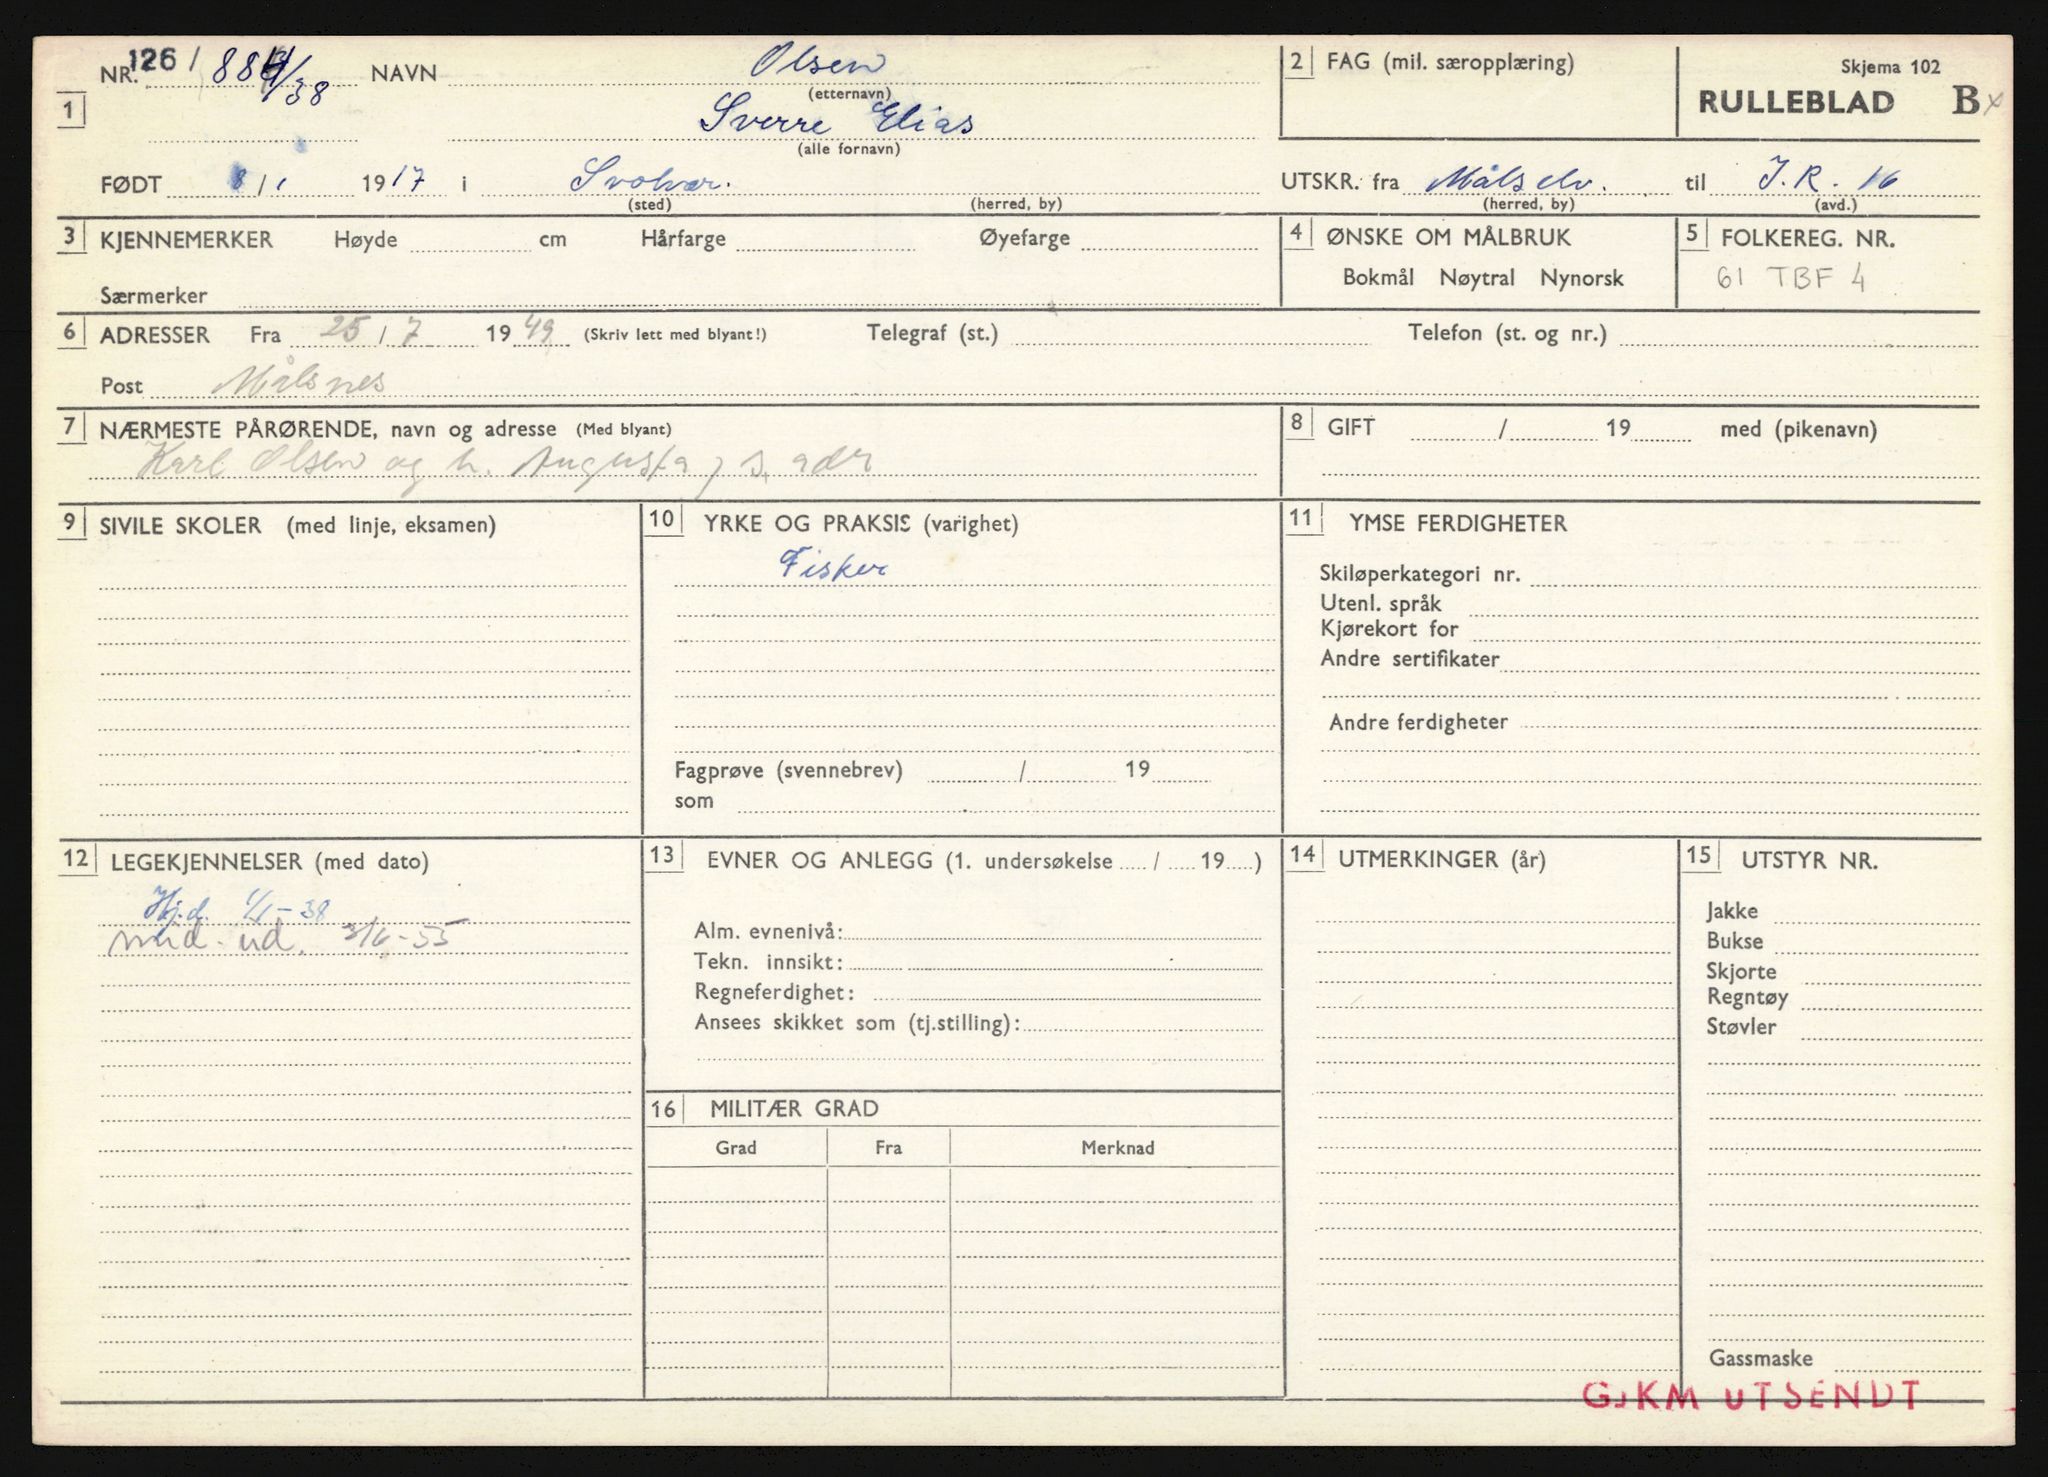 NR. 126 / 884/38 NAVN Olsen
(etternavn)
1 Sverre Elias
(alle fornavn)
FØDT 8 / 1 1917 i Svolvær.
(sted) (herred, by)
2 FAG (mil. særopplæring)
Skjema 102
RULLEBLAD B x
UTSKR. fra Målselv. til I.R. 16
(herred, by) (avd.)
3 KJENNEMERKER Høyde cm Hårfarge Øyefarge
Særmerker
4 ØNSKE OM MÅLBRUK
Bokmål Nøytral Nynorsk
5 FOLKEREG. NR.
61 TBF 4
6 ADRESSER Fra 25 / 7 1949 (Skriv lett med blyant!) Telegraf (st.) Telefon (st. og nr.)
Post Målsnes
7 NÆRMESTE PÅRØRENDE, navn og adresse (Med blyant)
Karl Olsen og h. Augusta, s. adr
8 GIFT / 19 med (pikenavn)
9 SIVILE SKOLER (med linje, eksamen)
10 YRKE OG PRAKSIS (varighet)
Fisker
Fagprøve (svennebrev) / 19
som
11 YMSE FERDIGHETER
Skiløperkategori nr.
Utenl. språk
Kjørekort for
Andre sertifikater
Andre ferdigheter
12 LEGEKJENNELSER (med dato)
Hj.d. 1/1-38
mid. ud. 3/6-55
13 EVNER OG ANLEGG (1. undersøkelse / 19 )
Alm. evnenivå:
Tekn. innsikt:
Regneferdighet:
Ansees skikket som (tj.stilling):
14 UTMERKINGER (år)
15 UTSTYR NR.
Jakke
Bukse
Skjorte
Regntøy
Støvler
Gassmaske
16 MILITÆR GRAD
Grad Fra Merknad
GJKM UTSENDT